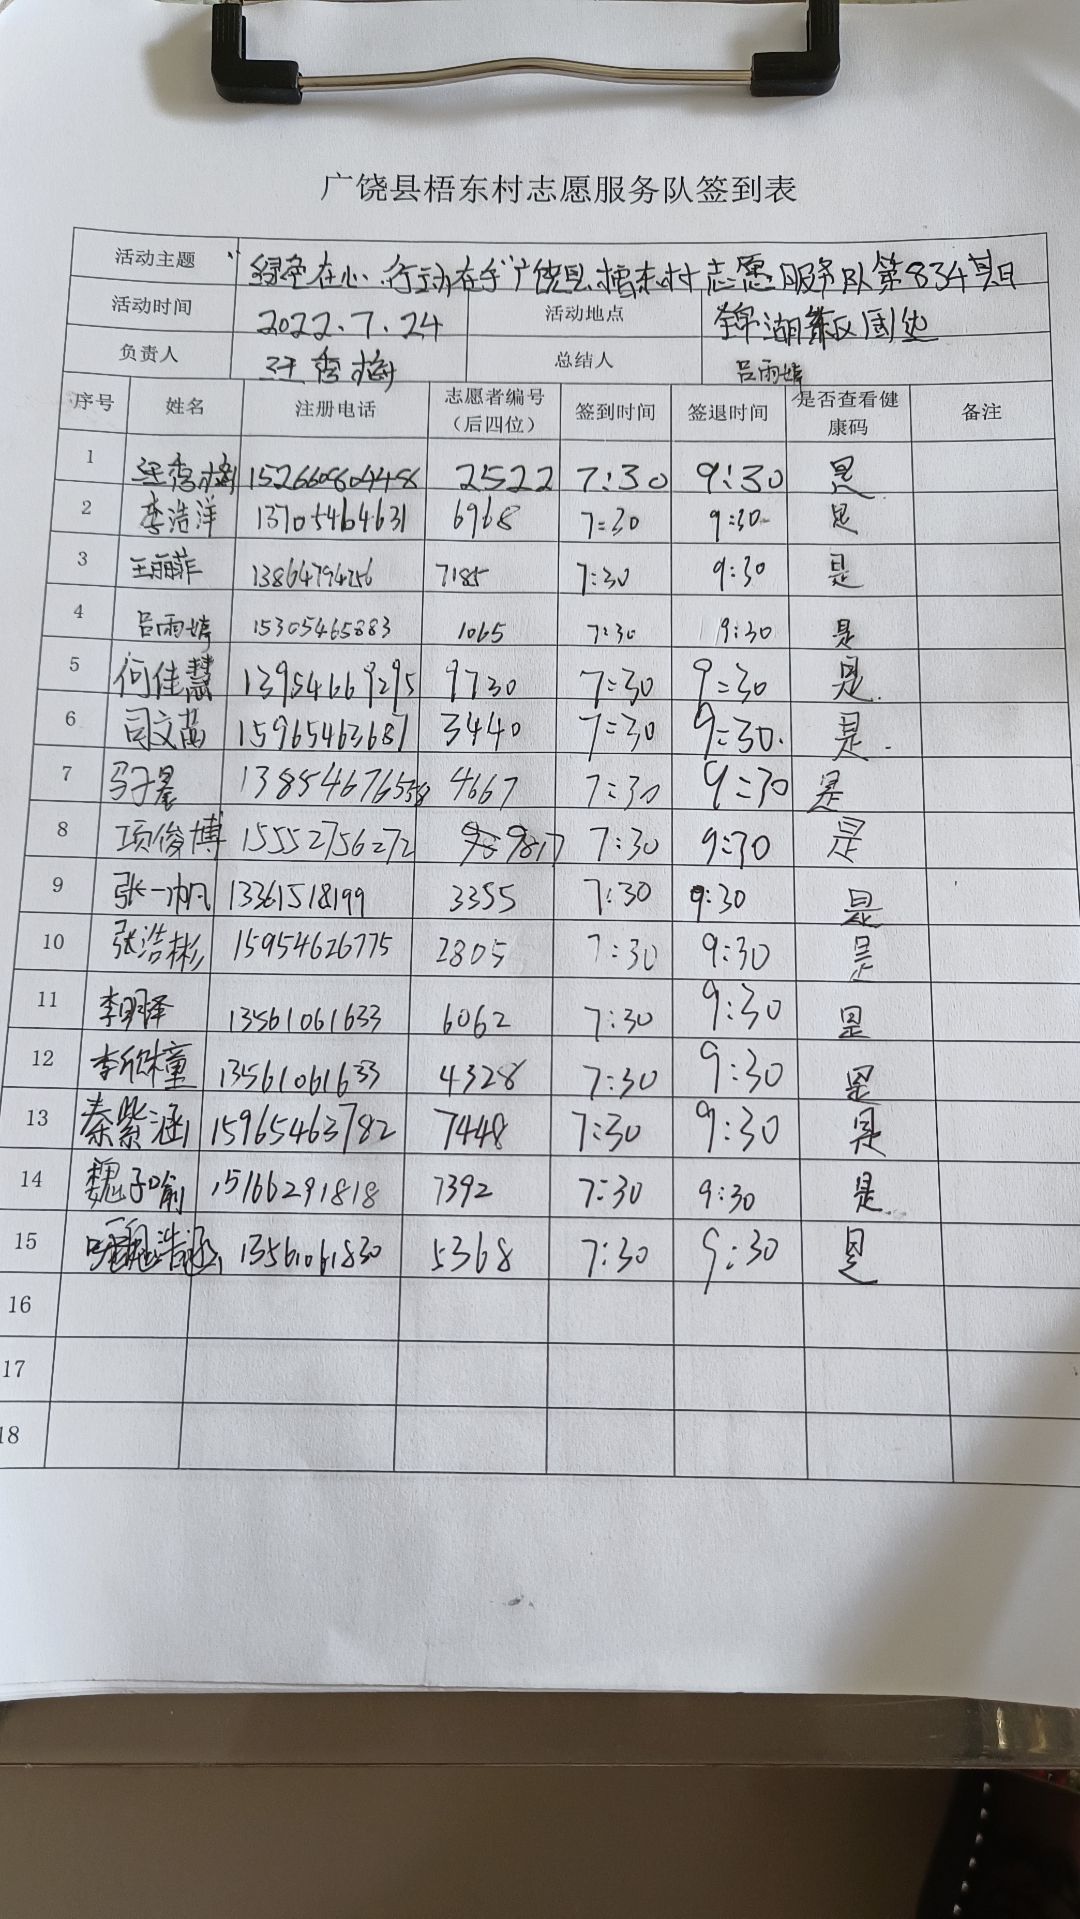 广饶县梧东村志愿服务队签到表
活动主题 “绿色在心、行动在手”广饶县梧东村志愿服务队第834期
活动时间 2022.7.24 活动地点 锦湖 周边
负责人 汪秀梅 总结人 吕雨婷
序号 姓名 注册电话 志愿者编号（后四位） 签到时间 签退时间 是否查看健康码 备注
1 汪秀梅 2522 7:30 9:30 是
2 李浩洋 13705464631 6968 7:30 9:30 是
3 王丽菲 13864794256 7185 7:30 9:30 是
4 吕雨婷 15305465883 1065 7:30 9:30 是
5 何佳慧 13954669295 9730 7:30 9:30 是
6 司文茜 15965463687 3440 7:30 9:30 是
7 4667 7:30 9:30 是
8 项俊博 15552756272 9817 7:30 9:30 是
9 张一帆 13361518199 3355 7:30 9:30 是
10 张浩彬 15954626775 2805 7:30 9:30 是
11 李明泽 13561061633 6062 7:30 9:30 是
12 李欣橦 13561061633 4328 7:30 9:30 是
13 秦紫涵 15965463782 7448 7:30 9:30 是
14 魏子喻 15166291818 7392 7:30 9:30 是
15 13561061830 5368 7:30 9:30 是
16
17
18